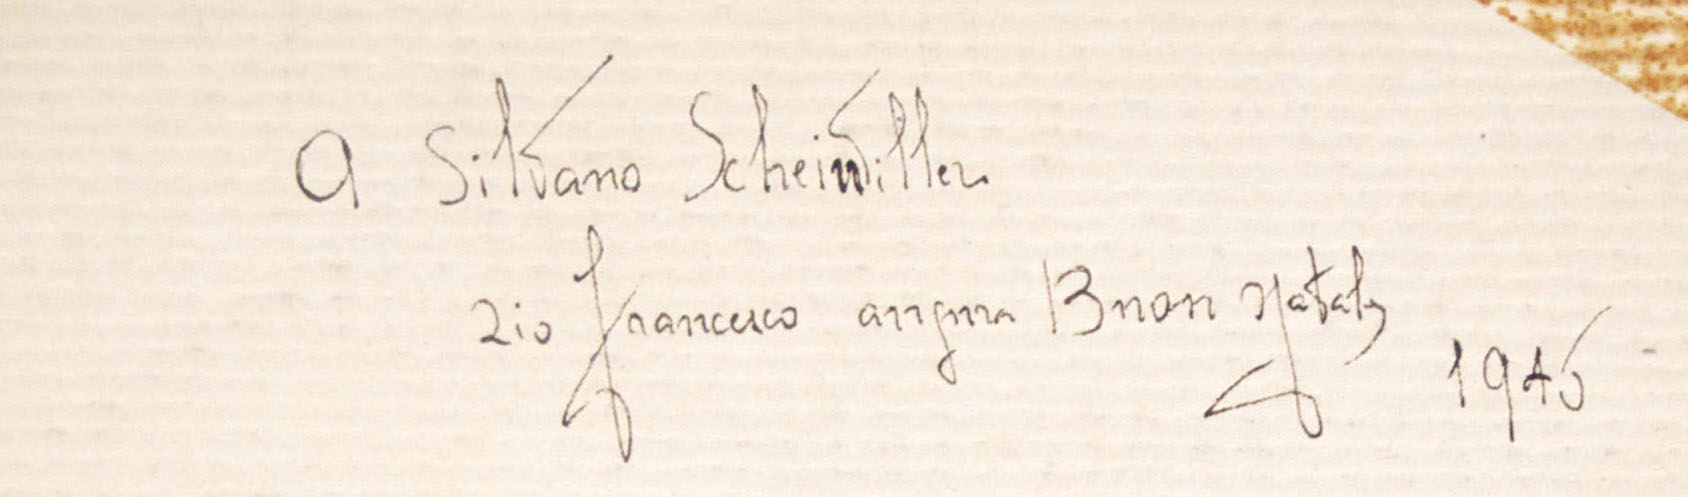 A Silvano Scheiwiller
zio Francesco augura Buon Natale
1945